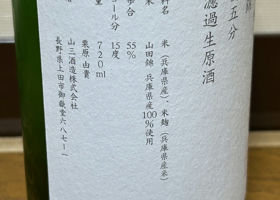 五分
濾過生原酒
料名 米(兵庫県産)、米麹(兵庫県産米)
米 山田錦 兵庫県産 100%使用
歩合 55%
ール分 15度
量 720ml
栗原由貴
山三酒造株式会社
長野県上田市御嶽堂六八七ー一